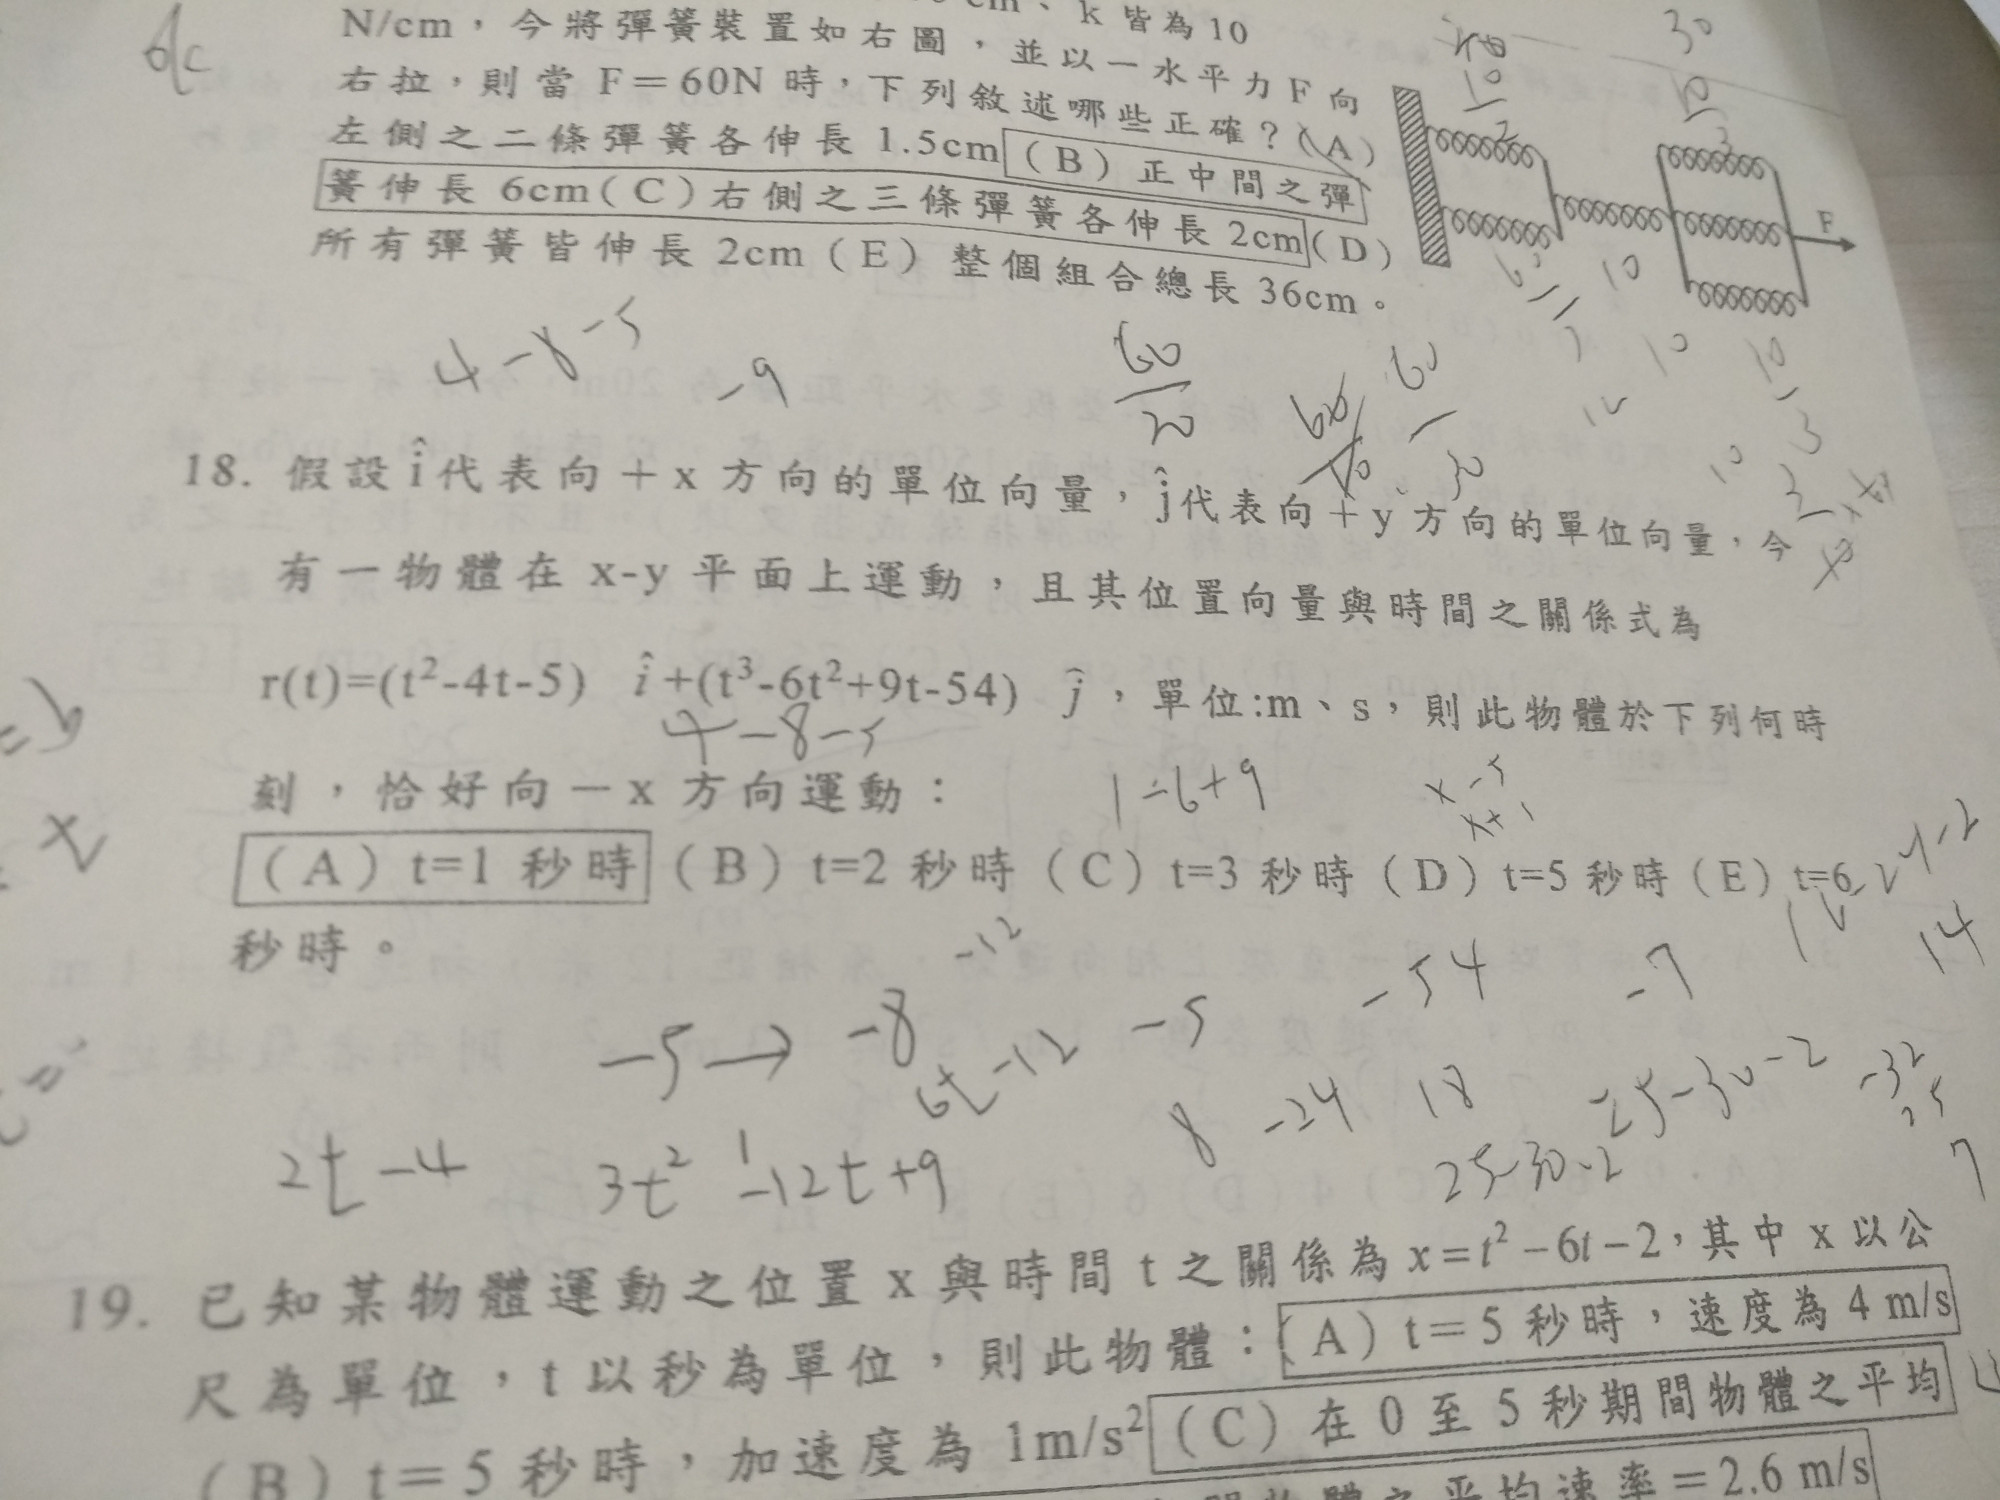 cm、k 皆為 10
N/cm，今將彈簧裝置如右圖，並以一水平力 F 向
右拉，則當 F＝60N 時，下列敘述哪些正確？(A)
左側之二條彈簧各伸長 1.5cm（B）正中間之彈
簧伸長 6cm(C)右側之三條彈簧各伸長 2cm(D)
所有彈簧皆伸長 2cm（E）整個組合總長 36cm。
F
30
10
3
10
2
10
4-8-5
-9
60
20
60
30
10
10
3
18. 假設î代表向＋x 方向的單位向量，ĵ代表向＋y 方向的單位向量，今
有一物體在 x-y 平面上運動，且其位置向量與時間之關係式為
r(t)=(t²-4t-5) î+(t³-6t²+9t-54) ĵ，單位:m、s，則此物體於下列何時
4-8-5
刻，恰好向－x 方向運動：
1-6+9
x-5
x+1
（A）t=1 秒時（B）t=2 秒時（C）t=3 秒時（D）t=5 秒時（E）t=6
秒時。
-12
-5→-8
6t-12
-5
-54
-7
14
2t-4
3t²-12t+9
8-24 18
25-30-2
25-30-2
-32
25
7
19. 已知某物體運動之位置 x 與時間 t 之關係為 x=t²－6t－2，其中 x 以公
尺為單位，t 以秒為單位，則此物體：(A）t＝5 秒時，速度為 4 m/s
（B）t＝5 秒時，加速度為 1m/s²（C）在 0 至 5 秒期間物體之平均
之平均速率＝2.6 m/s